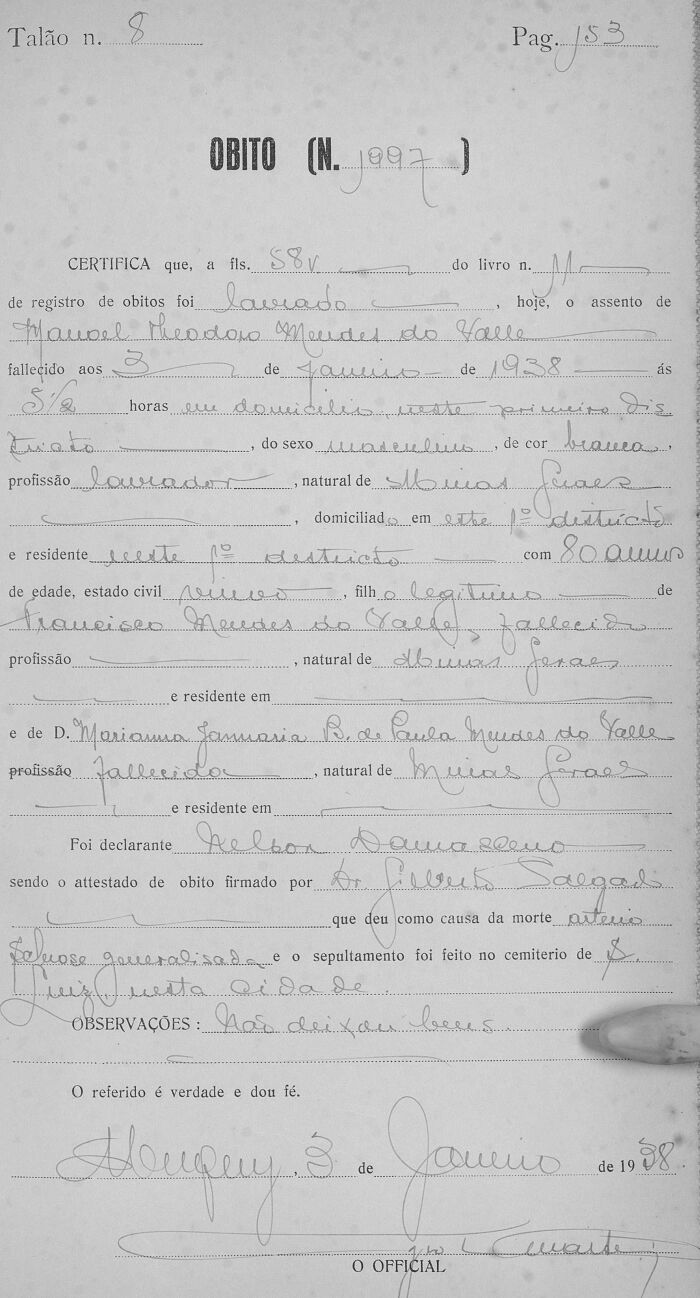 Talão n. 8 Pag. 153
OBITO (N. 1997)
CERTIFICA que, a fls. 58v do livro n. 11
de registro de obitos foi lavrado, hoje, o assento de
Manoel Theodoro Mendes do Valle
fallecido aos 3 de Janeiro de 1938 ás
5 1/2 horas em domicilio neste primeiro Dis
tricto, do sexo masculino, de cor branca,
profissão lavrador, natural de Minas Geraes
, domiciliado em este 1º districto
e residente neste 1º districto com 80 annos
de edade, estado civil viuvo, filho legitimo de
Francisco Mendes do Valle, fallecido
profissão , natural de Minas Geraes
e residente em
e de D. Marianna Januaria B. de Paula Mendes do Valle
profissão fallecida, natural de Minas Geraes
e residente em
Foi declarante Nelson Damasceno
sendo o attestado de obito firmado por Dr Gilberto Salgado
que deu como causa da morte arterio
Sclerose generalisada e o sepultamento foi feito no cemiterio de S.
Luiz, nesta cidade.
OBSERVAÇÕES: Não deixou bens.
O referido é verdade e dou fé.
, 3 de Janeiro de 1938.
O OFFICIAL